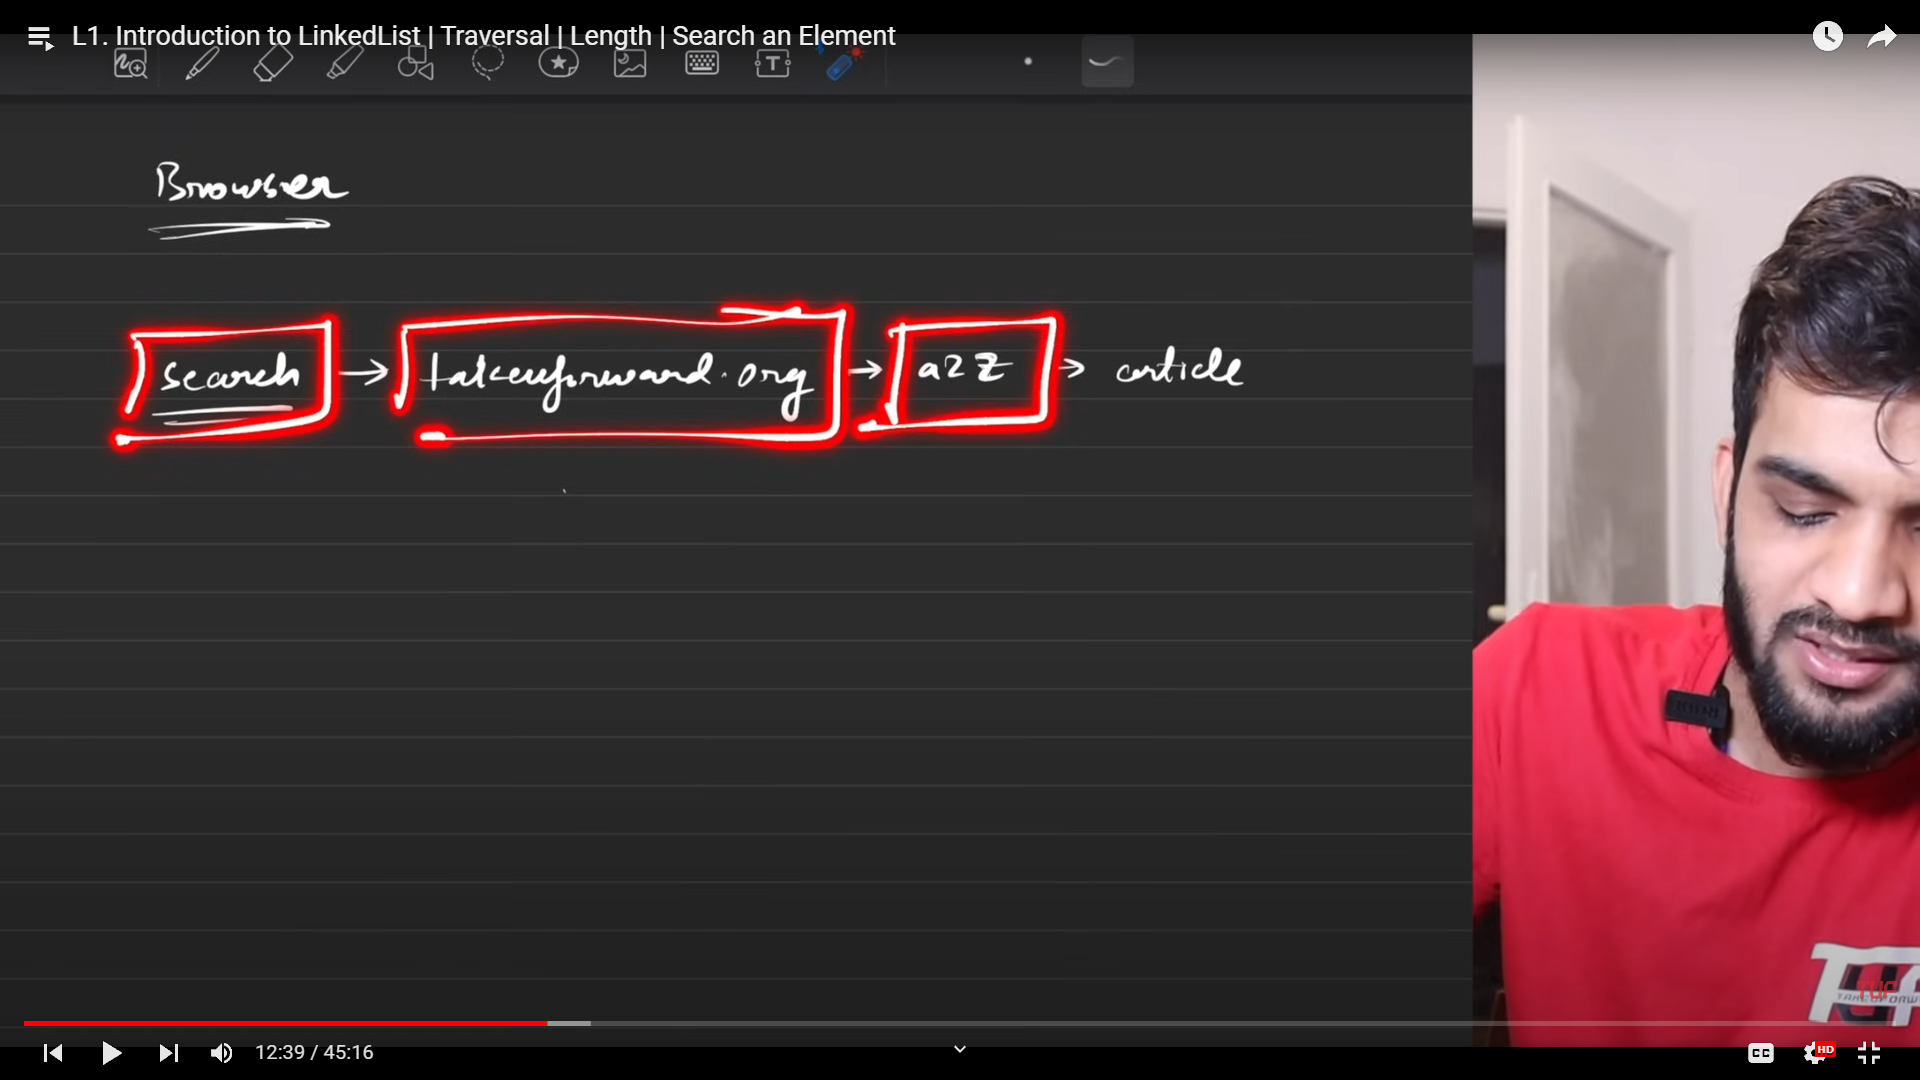 L1. Introduction to LinkedList | Traversal | Length | Search an Element
Browser
search → takeuforward.org → a2z → article
TUF
12:39 / 45:16
CC
HD